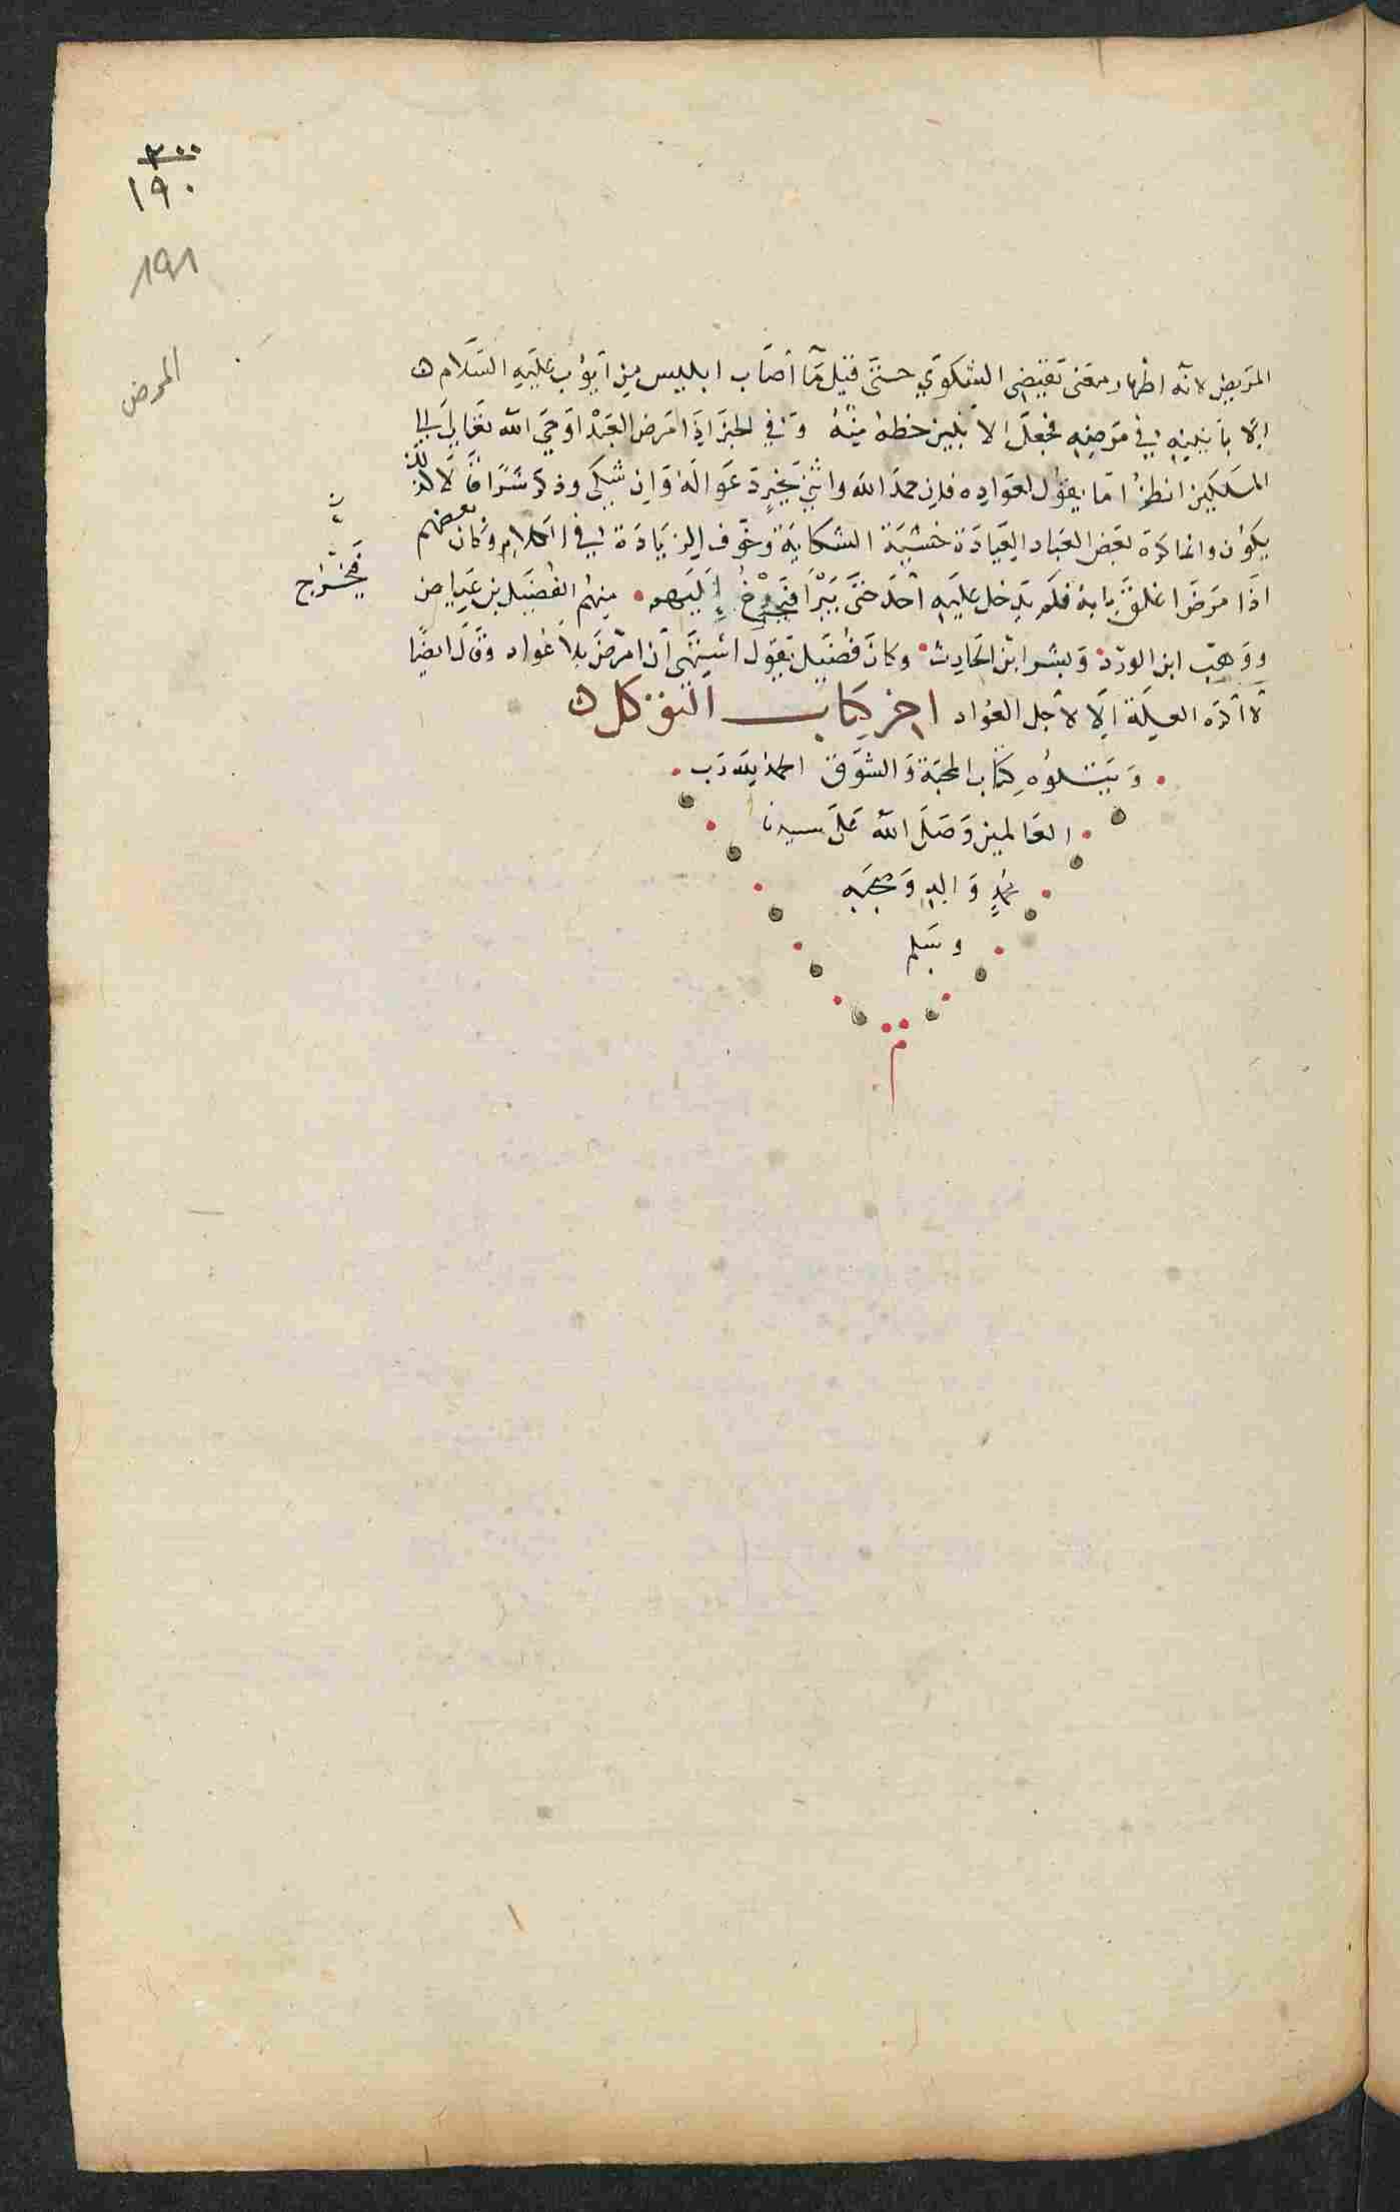 ٣٠٠
١٩٠
١٩١
المرض
المريض لانه اظهار معنى تقتضى الشكوي حتى قيل ما أصاب ابليس من ايوب عليه السلام ه
الا بانينه في مرضه فجعل الانين حظه منه وفي الخبر اذا مرض العبد اوحي الله تعالى الي
الملكين انظرا ما يقول لعواده فان حمد الله واثنى بخير دعوا له وان شكى وذكر شرا قالا كذلك
يكون وانما كره بعض العباد العيادة خشية الشكاية وخوف الزيادة في الكلام وكان بعضهم
اذا مرض اغلق بابه فلم يدخل عليه احد حتى يبرأ فيخرج إليهم منهم الفضيل بن عياض
فيخرج
ووهب ابن الورد وبشر ابن الحارث وكان فضيل يقول اشتهى أن امرض بلا عواد وقال ايضا
لا أكره العلة الا لاجل العواد اخر كتاب التوكل ه
ويتلوه كتاب المحبة والشوق الحمد لله رب
العالمين وصلى الله على سيدنا
محمد واله وصحبه
وسلم
تم